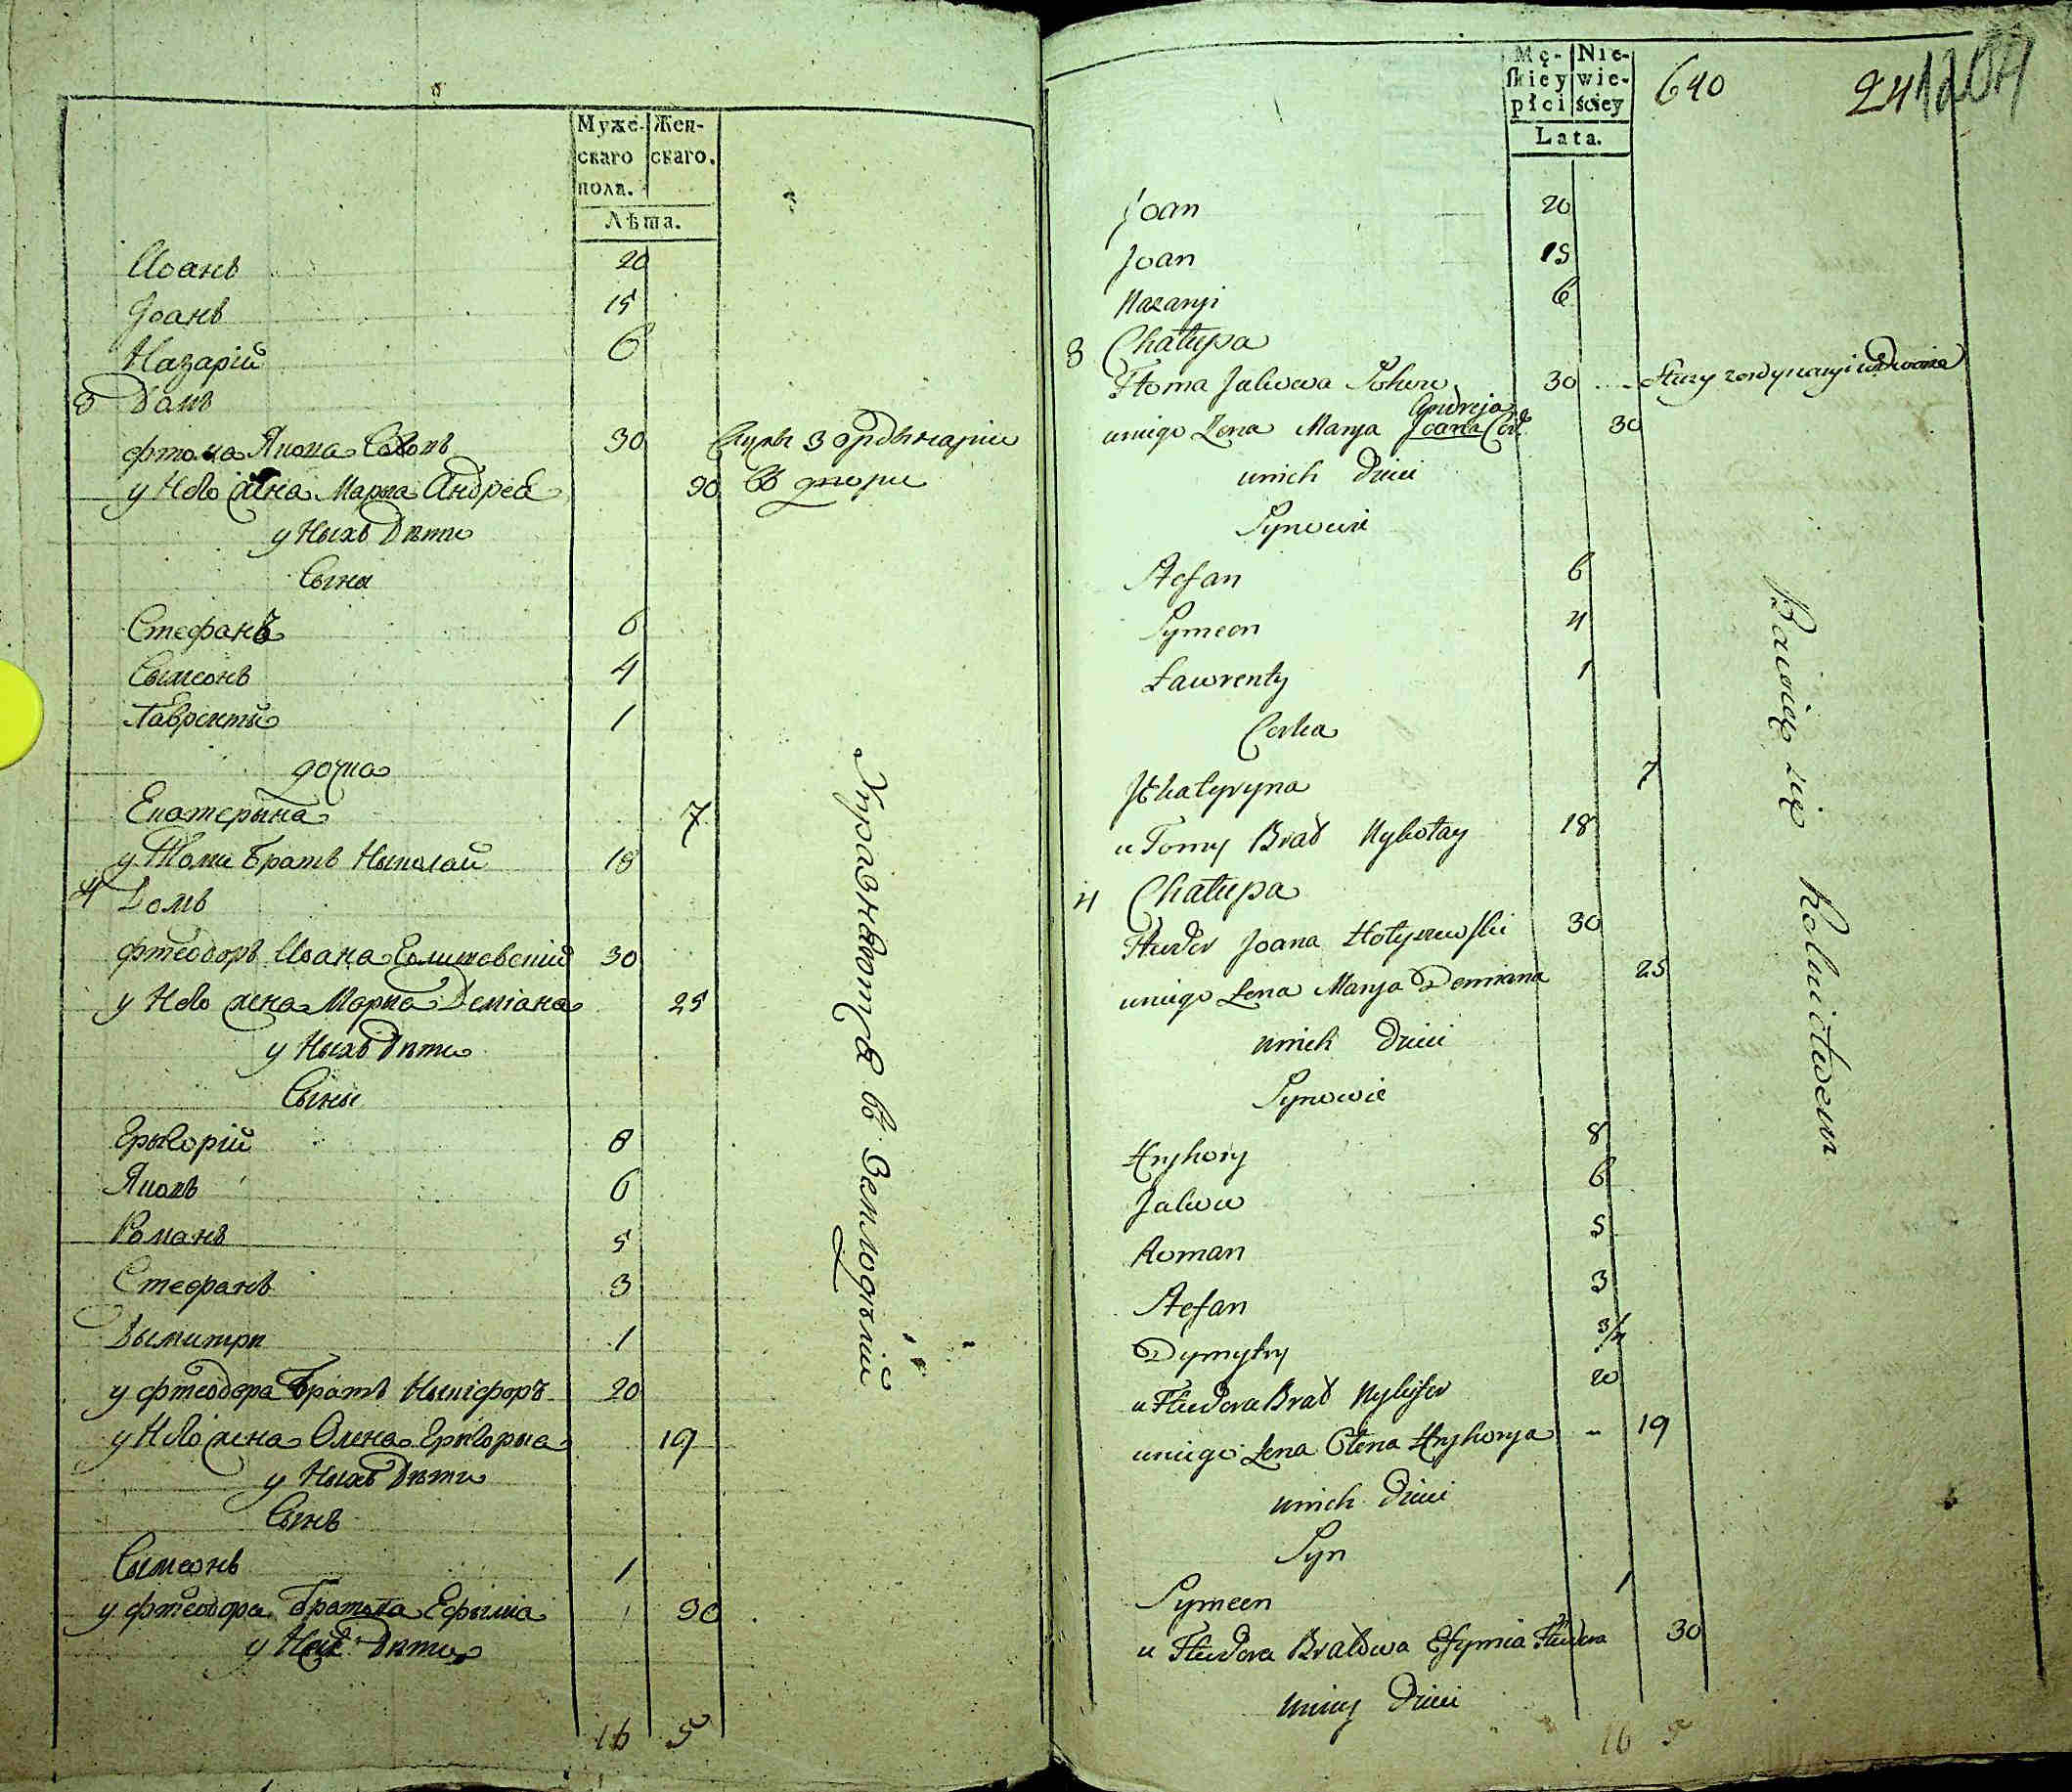 Муже- Жен-
скаго скаго.
пола.
Лѣта.
Иоанъ 20
Иоанъ 15
Назарій 6
3 Домъ
фтома Якова 30 Служы з ордынаріи
у Него жена Марыа Андрея 30 въ дворѣ
у Ныхъ Дѣти
Сыны
Стефанъ 6
Сымеонъ 4
Лавренты 1
дочка
Екатерына 7
у Томи братъ Ныколай 18
4 Домъ
фтеодоръ Иоана 30
у Него жена Марыа Деміана 25
у Ныхъ Дѣти
Сыны
Грыгорій 8
Яковъ 6
Романъ 5
Стефанъ 3
Дымитри 1
у фтеодора Братъ Ныкіфоръ 20
у Него жена Олена Грыгорыа 19
у Ныхъ Дѣти
Сынъ
Сымеонъ 1
у фтеодора Братова Ефыміа 30
у Ней Дѣти
16 5
Упражнаютца въ Земледѣліи
Mę- Nie-
skiey wie-
płci ściey
Lata.
640 24 1204
Joan 20
Joan 15
Nazaryi 6
3 Chałupa
Ftoma Jakowa 30 Służy zordynaryi wdworze
Andreja
uniego Żona Marya Joana Cor. 30
unich Dzieci
Synowie
Stefan 6
Symeon 4
Ławrenty 1
Corka
Jekatyryna 7
u Tomy Brad Nykołay 18
4 Chałupa
Fteodor Joana Hołyszewski 30
uniego Żona Marya Demiana 25
unich Dzieci
Synowie
Hryhory 8
Jakow 6
Roman 5
Stefan 3
Dymytry 3/4
u Fteodora Brad Nykifor 20
uniego Żona Ołena Hryhorya 19
unich Dzieci
Syn
Symeon 1
u Fteodora Bradowa Efymia Fteodora 30
uniey Dzieci
16 5
Bawięo się Rolnictwem